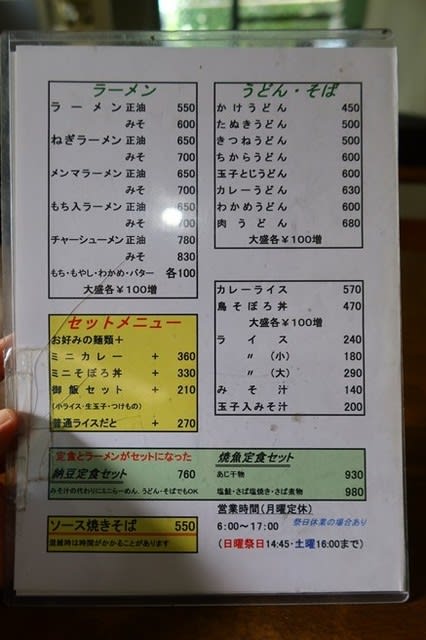 ラーメン
ラーメン 正油 550
みそ 600
ねぎラーメン 正油 650
みそ 700
メンマラーメン 正油 650
みそ 700
もち入ラーメン 正油 650
みそ 700
チャーシューメン 正油 780
みそ 830
もち・もやし・わかめ・バター 各100
大盛各￥100増
うどん・そば
かけうどん 450
たぬきうどん 500
きつねうどん 500
ちからうどん 600
玉子とじうどん 600
カレーうどん 630
わかめうどん 600
肉うどん 680
大盛各￥100増
カレーライス 570
鳥そぼろ丼 470
大盛各￥100増
ライス 240
〃 (小) 180
〃 (大) 290
みそ汁 140
玉子入みそ汁 200
セットメニュー
お好みの麺類＋
ミニカレー + 360
ミニそぼろ丼 + 330
御飯セット + 210
(小ライス・生玉子・つけもの)
普通ライスだと + 270
定食とラーメンがセットになった
納豆定食セット 760
みそ汁の代わりにミニらーめん、うどん・そばでもOK
焼魚定食セット
あじ干物 930
塩鮭・さば塩焼き・さば煮物 980
ソース焼きそば 550
混雑時は時間がかかることがあります
営業時間(月曜定休)
6:00～17:00 祭日休業の場合あり
(日曜祭日14:45・土曜16:00まで)